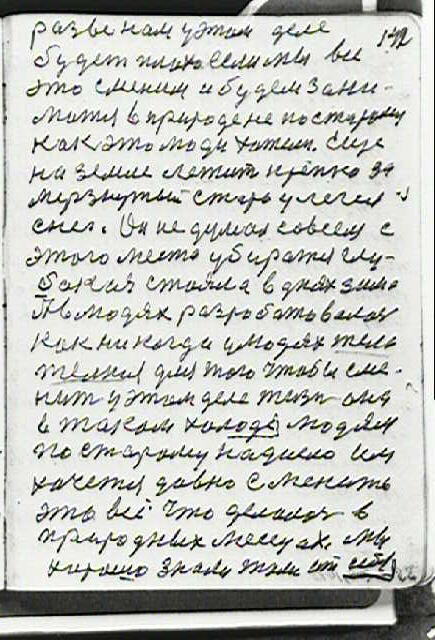 разве нам у этом деле 172
будет плохо если мы все
это сменим и будем зани-
матся в природе не по старому
как это люди хотели. Еще
на земле лежит крепко за
мерзнутый старо улегся
снег. Он не думал совсем с
этого места убиратся глу-
бокая стояла в днях зима
В людях разработавалось
как никогда у людях тело
для того чтобы сме-
нить у этом деле жизнь она
в таком холоде людям
по старому надоело им
хочется давно сменить
это всё что делалось в
природных месцах. мы
хорошо знали этом от себя